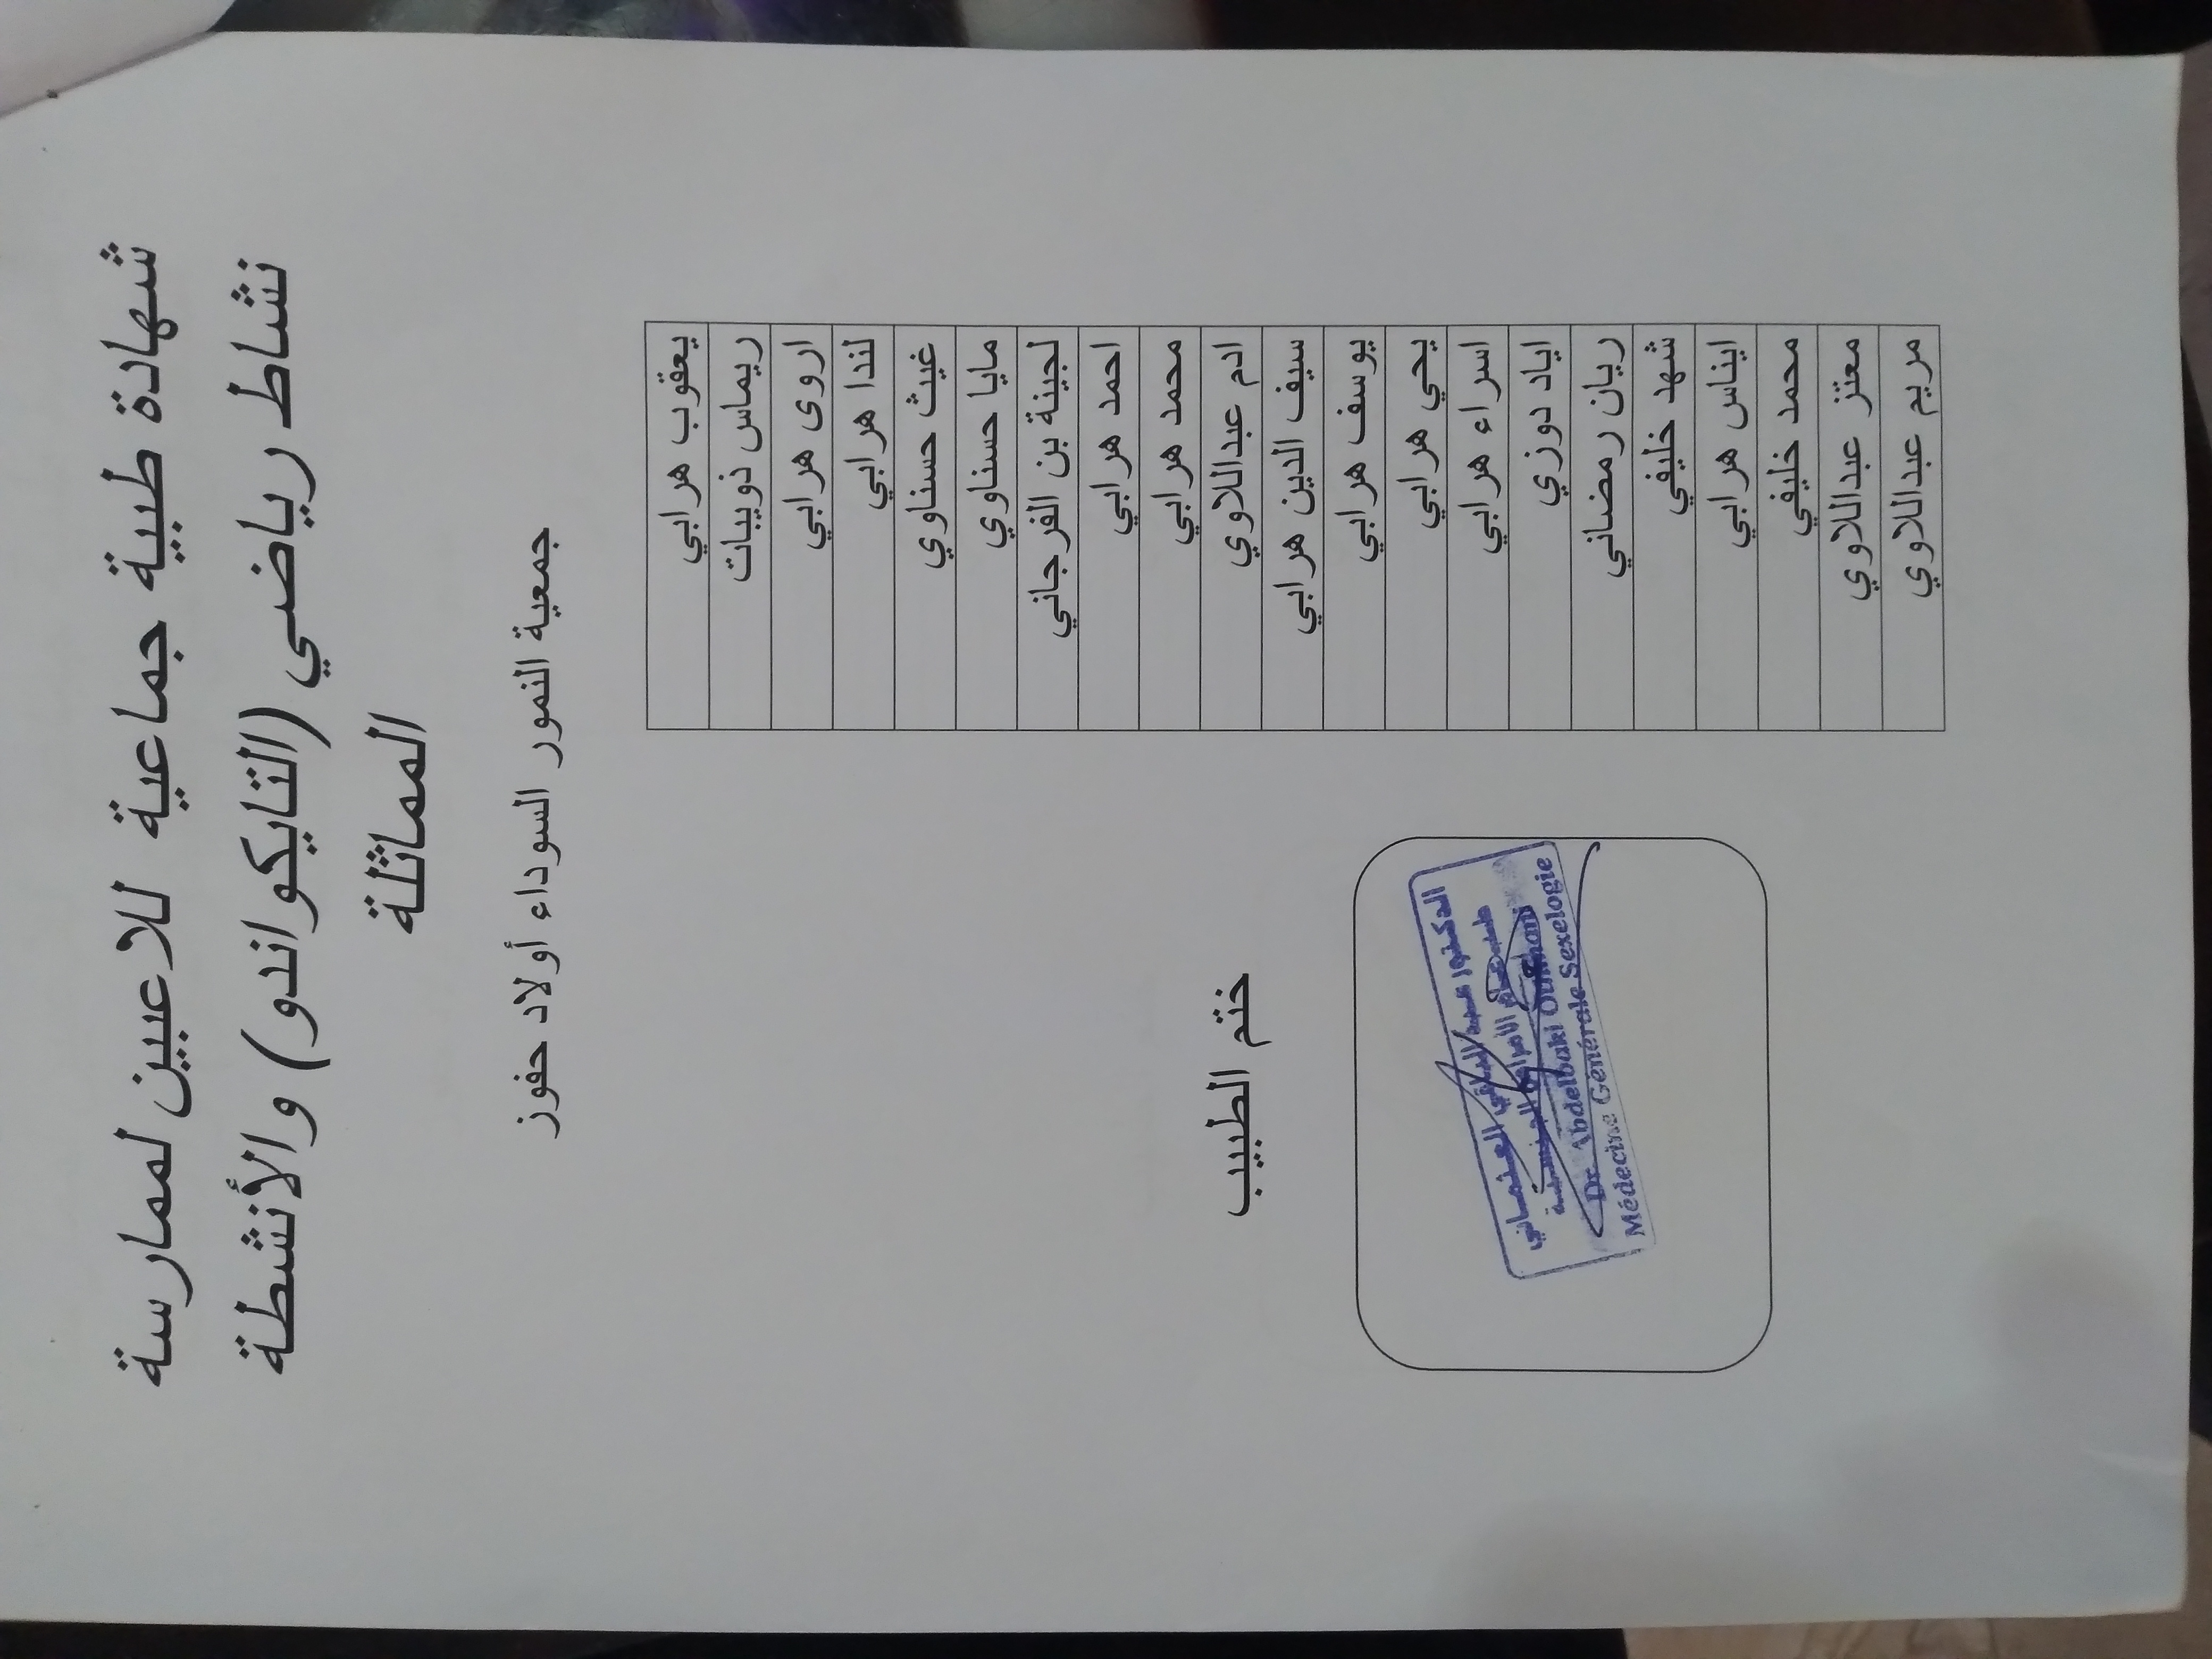 شهادة طبية جماعية للاعبين لممارسة
نشاط رياضي (التايكواندو) والأنشطة
المماثلة
جمعية النمور السوداء أولاد حفوز
يعقوب هرابي
ريماس ذويبات
اروى هرابي
لندا هرابي
غيث حسناوي
مايا حسناوي
لجينة بن الفرجاني
احمد هرابي
محمد هرابي
ادم عبداللاوي
سيف الدين هرابي
يوسف هرابي
يحي هرابي
اسراء هرابي
اياد دوزي
ريان رمضاني
شهد خليفي
ايناس هرابي
محمد خليفي
معتز عبداللاوي
مريم عبداللاوي
ختم الطبيب
الدكتور عبد الباقي العثماني
طب عام الأمراض الجنسية
Dr. Abdelbaki Outhmani
Médecine Générale Sexelogie